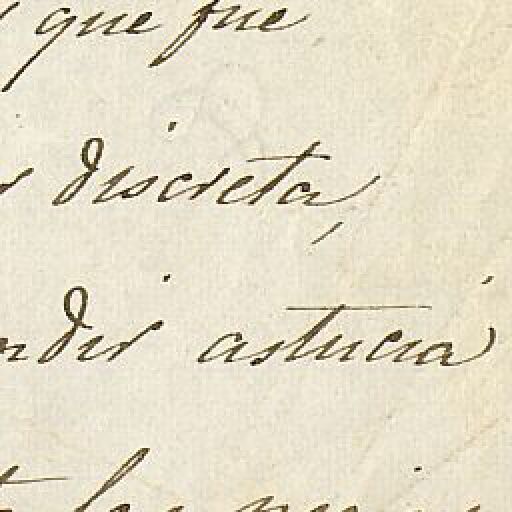 que fue
discreta,
ndir astucia